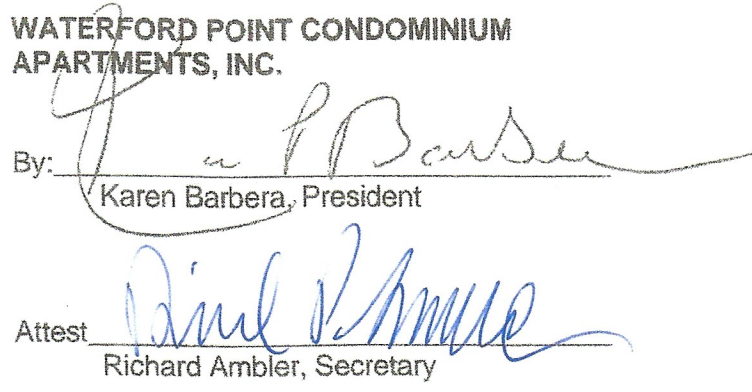 WATERFORD POINT CONDOMINIUM
APARTMENTS, INC.
By:
Karen Barbera, President
Attest
Richard Ambler, Secretary